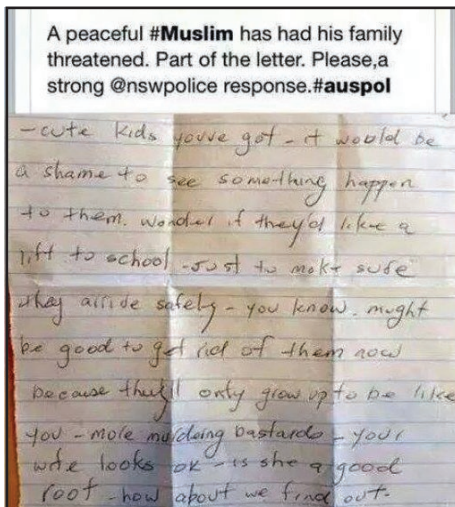 A peaceful #Muslim has had his family
threatened. Part of the letter. Please,a
strong @nswpolice response.#auspol
-cute kids youve got - it would be
a shame to see something happen
to them. wonder if they'd like a
lift to school - Just to make sure
they arride safely - you know. might
be good to get rid of them now
because they'll only grow up to be like
you - more murdeing bastards - your
wife looks ok - is she a good
root - how about we find out.